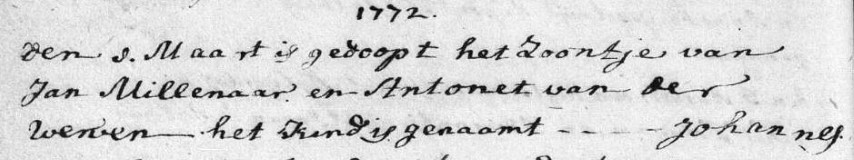 1772.
den 8. Maart is gedoopt het Zoontje van
Jan Millenaar en Antonet van der
Werven het Kind is genaamt - - - - Johannes